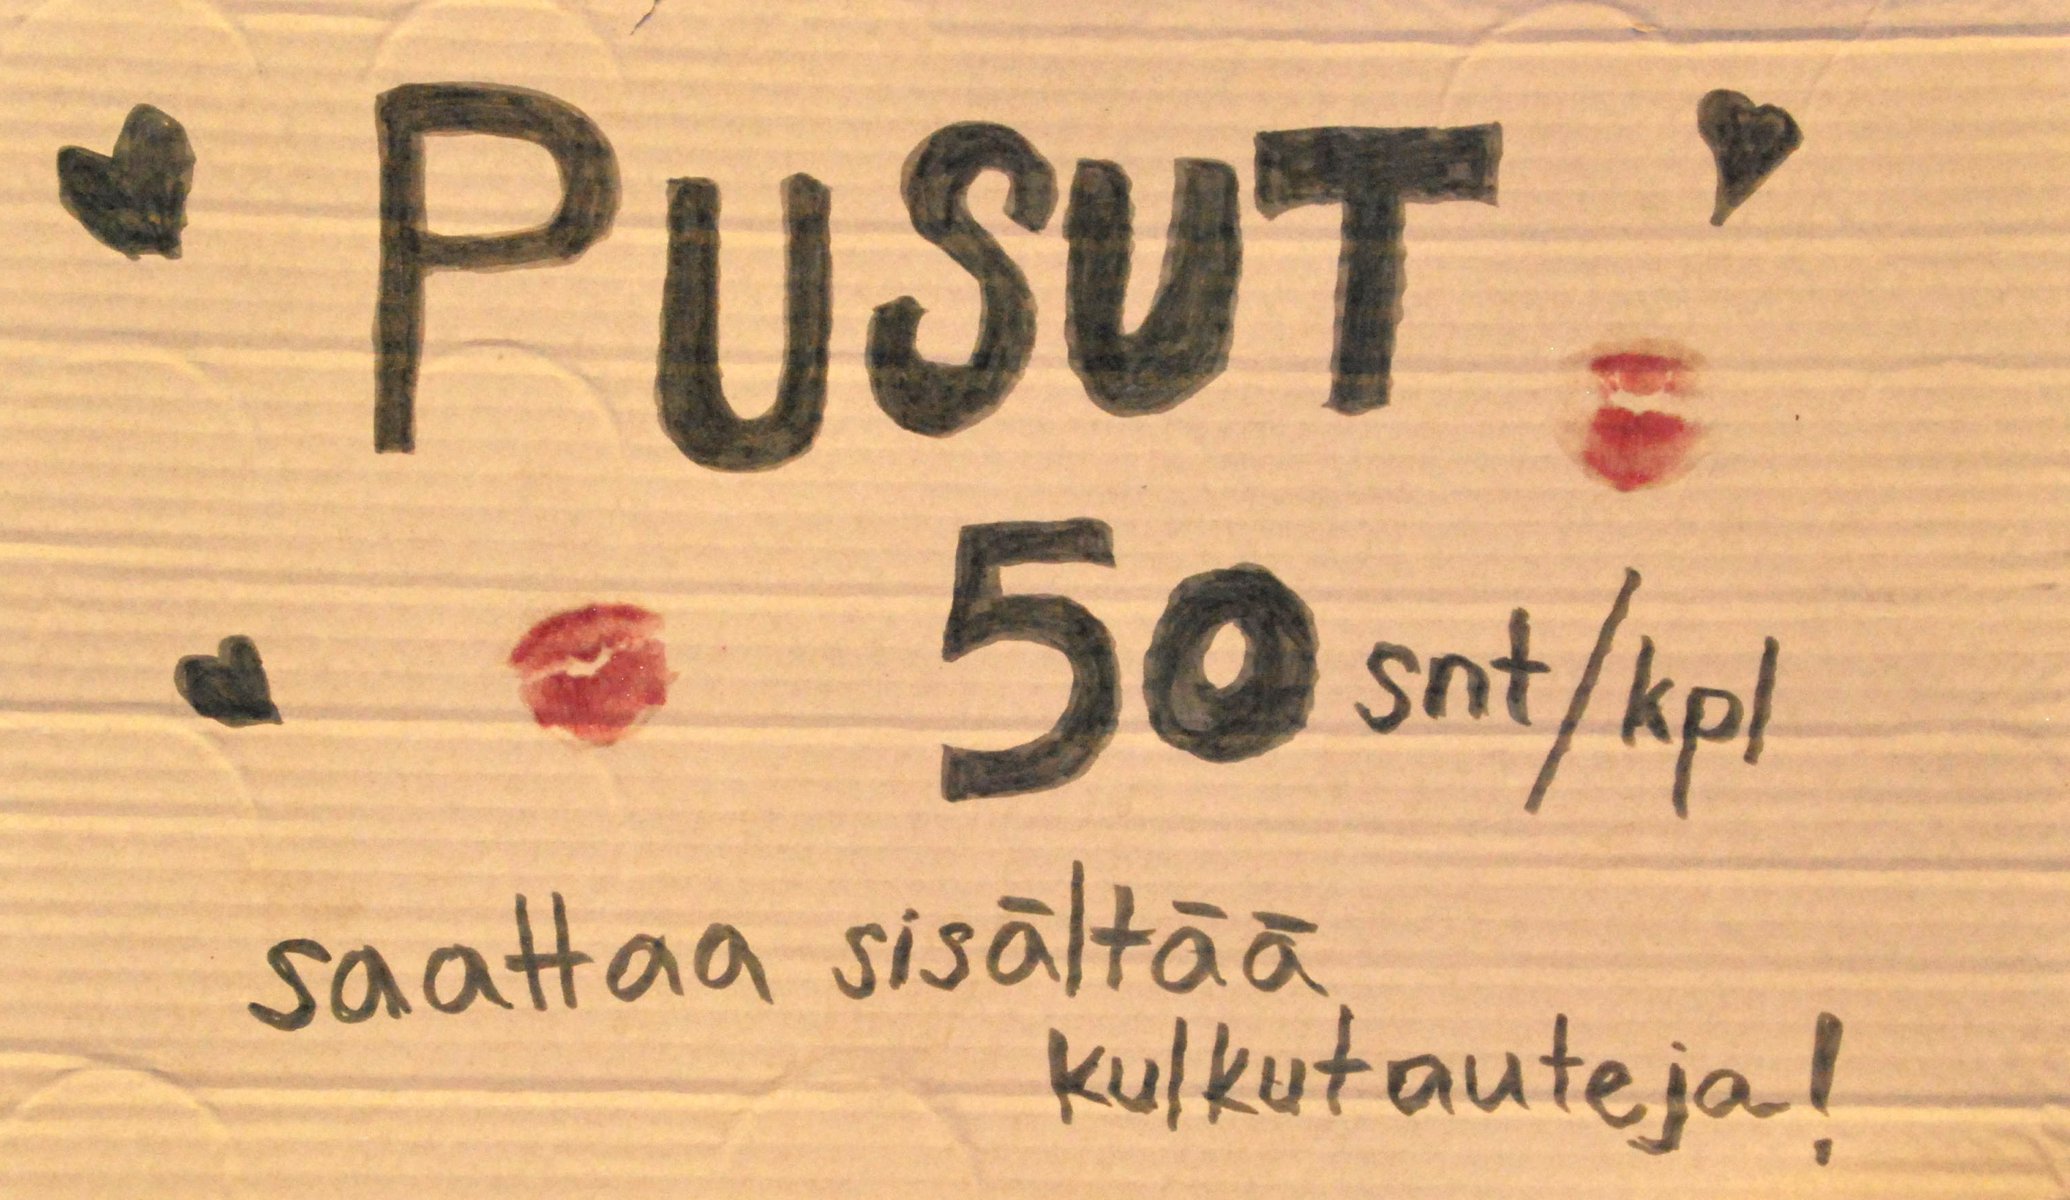 PUSUT
50 snt/kpl
saattaa sisältää
kulkutauteja!